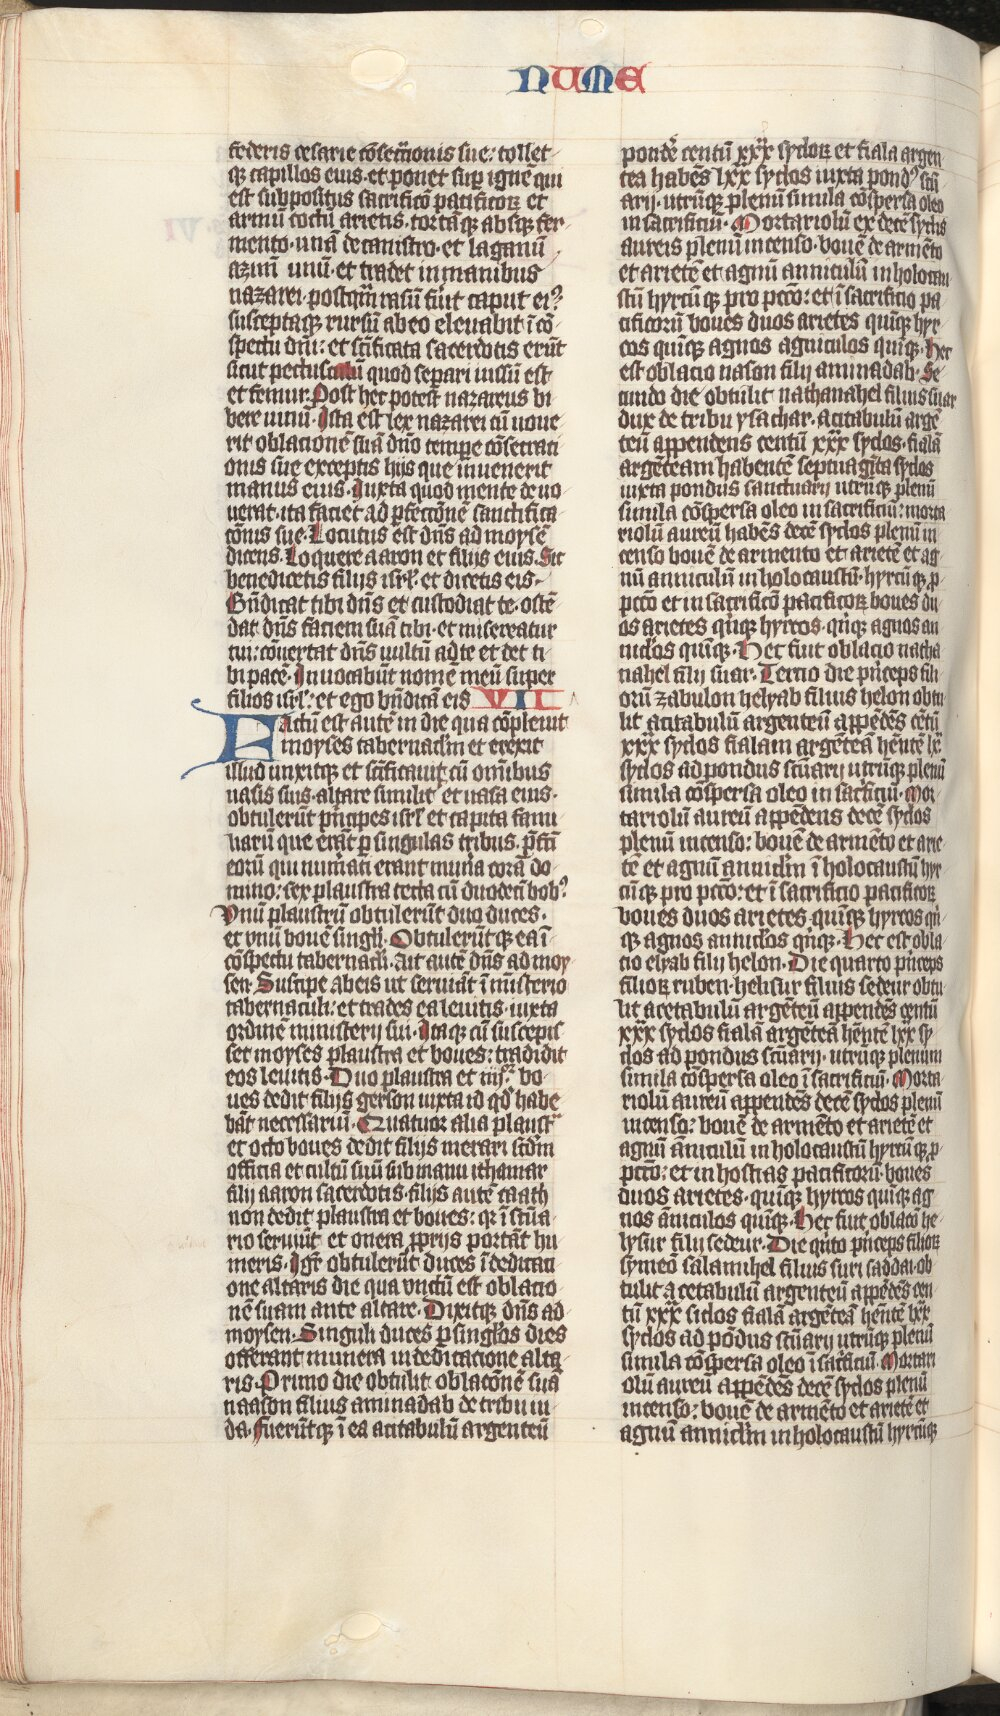 NUME
federis cesarie cōsecc̄ionis sue: tollet-
q̄ capillos eius · et ponet sup̄ ignē qui
est subpositus sacrificō pacificoꝝ et
armū coctū arietis, tortāq̄ absq̄ fer-
mento · unā de canistro · et laganū
azimū unū · et tradet in manibus
nazarei · postq̄m rasū fuit caput eiꝰ
susceptaq̄ rursū ab eo eleuabit ī cō-
spectu dn̄i: et sc̄ificata sacerdotis erūt
sicut pectusculū quod separi iussū est
et femur. Post hec potest nazareus bi
bere uinū. Ista est lex nazarei cū uoue-
rit oblacionē suā dn̄o tempe cōsecrati
onis sue exceptis hijs que inuenerit
manus eius. Iuxta quod mente deuo
uerat · ita faciet ad p̄feccōnē sanctifica
cōnis sue. Locutus est dn̄s ad moysē
dicens. Loquere aaron et filijs eius. Sic
benedicetis filijs isrl̄ · et dicetis eis-
Bn̄dicat tibi dn̄s et custodiat te · ostē
dat dn̄s faciem suā tibi · et misereatur
tui: cōuertat dn̄s uultū ad te et det ti
bi pacē. Inuocabūt nomē meū super
filios isrl̄: et ego bn̄dicā eis VII
Factū est autē in die qua cōpleuit
moyses tabernaclm̄ et erexit
illud unxitq̄ et sc̄ificauit cū omībus
uasis suis · altare similit̄ et uasa eius ·
obtulerūt p̄ncipes isrl̄ et capita fami
liarū que erāt p̄ singulas tribus · p̄fc̄i
eorū qui nūm̄ati erant mun̄a corā do
mino: sex plaustra tecta cū duodecī bobꝰ
Vnū plaustrū obtulerūt duo duces ·
et vnū bouē singl̄i. Obtulerūtq̄ ea ī
cōspectu tabernacl̄i. Ait autē dn̄s ad moy
sen. Suscipe ab eis ut seruiāt ī ministerio
tabernaculi: et trades ea leuitis · iuxta
ordinē ministerij sui. Itaq̄ cū suscepis
set moyses plaustra et boues: tradidit
eos leuitis. Duo plaustra et iiijor bo-
ues dedit filijs gerson iuxta id qd̄ habe
bāt necessariū. Quatuor alia plaustra
et octo boues dedit filijs merari sc̄dm̄
officia et cultū suū sub manu ithamar
filij aaron sacerdotis · filijs autē caath
non dedit plaustra et boues: q̄ ī sc̄ua
rio seruiūt et onera p̄prijs portāt hu
meris. Igr̄ obtulerūt duces ī dedicati
one altaris die qua vnctū est oblacio
nē suam ante altare. Dixitq̄ dn̄s ad
moysen. Singuli duces p̄ singl̄os dies
offerant munera in dedicacione alta
ris. Primo die obtulit oblacōnē suā
naason filius aminadab de tribu iu
da. fuerūtq̄ ī ea acitabulū argenteū
pondē centū xxx sycloꝝ et fiala argen
tea habēs lxx syclos iuxta pondꝰ sc̄u
arij · utrūq̄ plenū simila cōspersa oleo
in sacrificiū. Mortariolū ex decē syclis
aureis plenū incenso · bouē de armēto
et arietē et agnū anniculū in holocau
stū hyrcūq̄ pro pcc̄o: et ī sacrificio pa
cificorū boues duos arietes quiq̄ hyr
cos quiq̄ agnos agniculos quiq̄. Hec
est oblacio nason filij aminadab. Se
cundo die obtulit nathanahel filius suar
dux de tribu ysachar. acitabulū argē
teū appendens centū xxx syclos · fialā
argēteam habentē septuagīta syclos
iuxta pondus sanctuarij utrūq̄ plenū
simila cōspersa oleo in sacrificiū: morta
riolū aureū habēs decē syclos plenū in
censo bouē de armento et arietē et ag
nū anniculū in holocaustū · hyrcūq̄ p̄
pcc̄o et in sacrificō pacificoꝝ boues du
os arietes qiq̄ hyrcos · qiq̄ agnos an
nicl̄os quīq̄. Hec fuit oblacio natha
nahel filij suar. Tercio die p̄nceps fili
orū zabulon helyab filius helon obtu
lit acitabulū argenteū appēdēs cētū
xxx syclos fialam argēteā hēntē lxx
syclos ad pondus sc̄uarij utrūq̄ plenū
simila cōspersa oleo in sacrificiū. Mor
tariolū aureū appēdens decē syclos
plenū incenso: bouē de armēto et arie
tē et agnū anniclm̄ ī holocaustū hyr
cūq̄ pro pcc̄o: et ī sacrificio pacificoꝝ
boues duos arietes · quiq̄ hyrcos qi
q̄ agnos anniclōs qiq̄. Hec est obla
cio elyab filij helon. Die quarto p̄nceps
filioꝝ ruben · helisur filius sedeur obtu
lit acetabulū argēteū appendēs centū
xxx syclos fialā argēteā hēntē lxx sy
clos ad pondus sc̄uarij · utrūq̄ plenum
simila cōspersa oleo ī sacrificiū. Morta
riolū aureū appendēs decē syclos plenū
incenso: bouē de armēto et arietē et
agnū āniculū in holocaustū hyrcūq̄ p̄
pcc̄o: et in hostias pacificorū · boues
duos arietes · quiq̄ hyrcos quiq̄ ag
nos āniculos quiq̄. Hec fuit oblacō he
lysur filij sedeur. Die qīto p̄nceps filioꝝ
symeō salamihel filius suri saddai · ob
tulit acetabulū argenteū appēdēs cen
tū xxx siclos fialā argēteā hēntē lxx
syclos ad pōdus sc̄uarij utrūq̄ plenū
simila cōspersa oleo ī sacrificiū. Mortari
olū aureū appēdēs decē syclos plenū
incenso: bouē de armēto et arietē et
agnū anniclm̄ in holocaustū hyrcūq̄